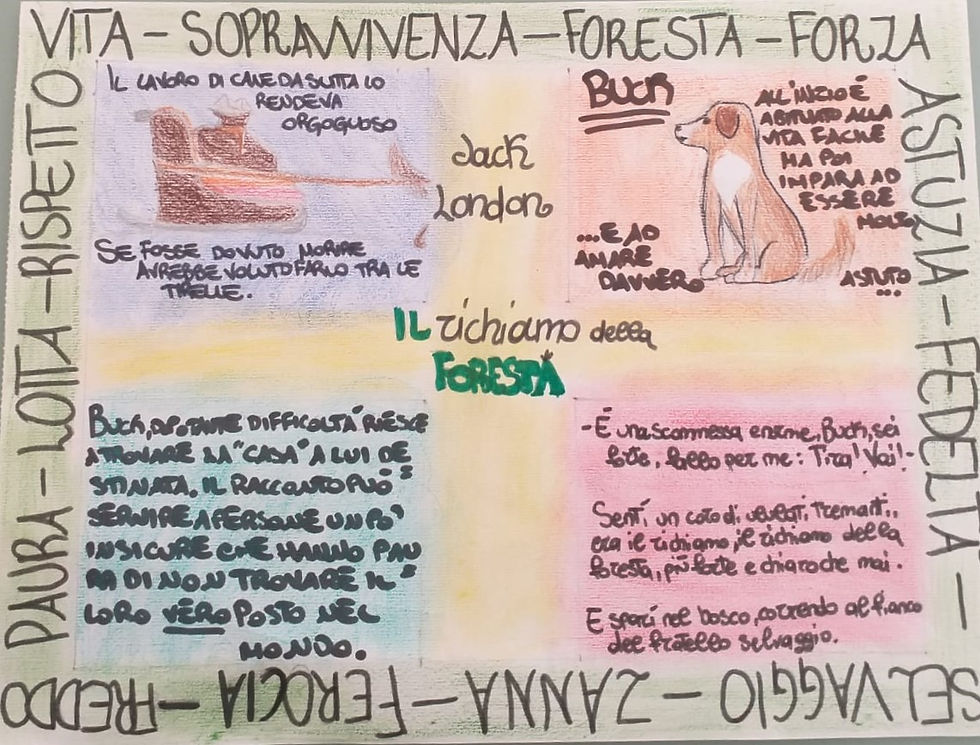 VITA – SOPRAVVIVENZA – FORESTA – FORZA
ASTUZIA – FEDELTÀ –
SELVAGGIO – ZANNA – FEROCIA – FREDDO
PAURA – LOTTA – RISPETTO
IL LAVORO DI CANE DA SLITTA LO
RENDEVA
ORGOGLIOSO
SE FOSSE DOVUTO MORIRE
AVREBBE VOLUTO FARLO TRA LE
TIRELLE.
Jack
London
BUCK
ALL'INIZIO É
ABITUATO ALLA
VITA FACILE
MA POI
IMPARA AD
ESSERE
ASTUTO
...
...E AD
AMARE
DAVVERO
IL richiamo della
FORESTA
BUCK, DOPO TANTE DIFFICOLTÀ RIESCE
A TROVARE LA "CASA" A LUI DE
STINATA. IL RACCONTO PUÒ
SERVIRE A PERSONE UN PO'
INSICURE CHE HANNO PAU
RA DI NON TROVARE IL
LORO VERO POSTO NEL
MONDO.
- É una scommessa enorme, Buck, sei
forte, fallo per me: Tira! Vai! -
Sentì un coro di ululati, tremanti,
era il richiamo, il richiamo della
foresta, più forte e chiaro che mai.
E sparì nel bosco, correndo al fianco
del fratello selvaggio.